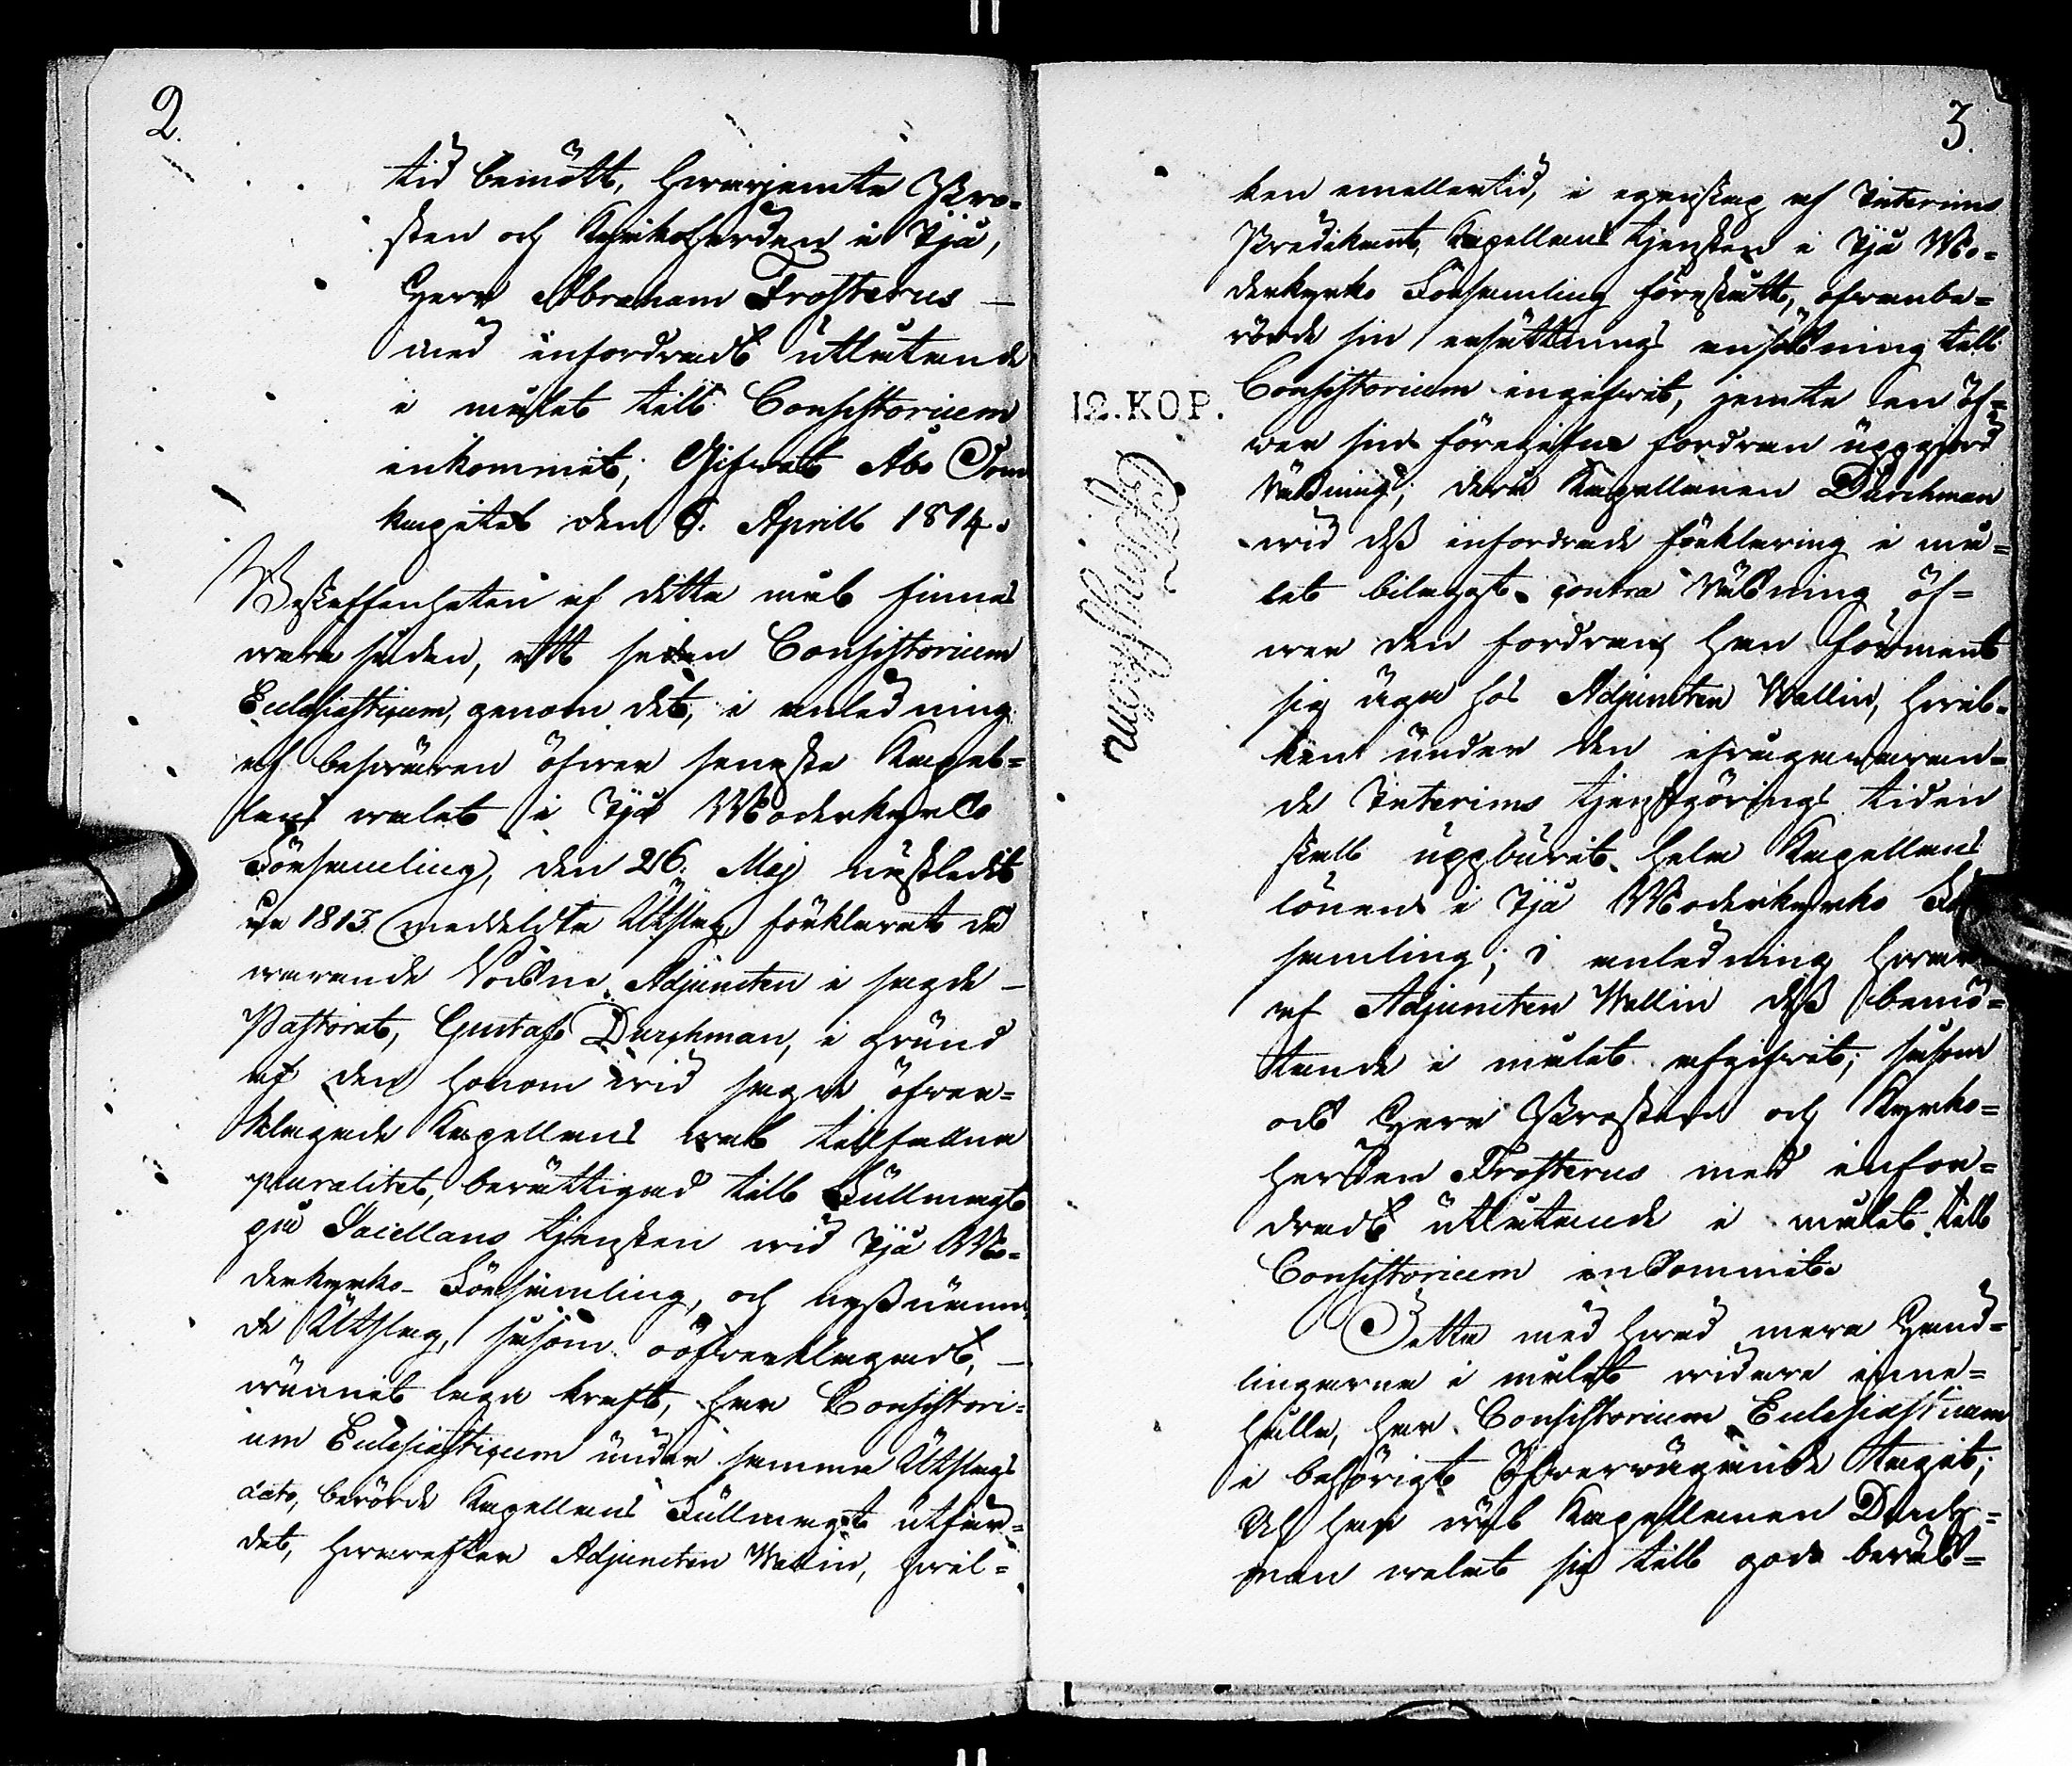 2.
tid bemött, hwarjemte Pro-
sten och Kyrkoherden i Ijå,
Herr Abraham Frosterus –
med infordradt utlåtande
i målet till Consistorium
inkommit; Gifwet Åbo Dom
kapitel den 6. April 1814.
Beskaffenheten af detta mål finnes
wara sådan, att sedan Consistorium
Ecclesiasticum, genom det, i anledning
af beswären öfwer senaste Kapel-
lans walet i Ijå Moderkyrko
Församling, den 26. Maj nästledit
år 1813. meddelte Utslag, förklarat då
warande Sockne Adjuncten i sagde –
Pastorat, Gustaf Durchman, i grund
af den honom wid sagde öfwer-
klagade Kapellans wal tillfallna
pluralitet, berättigad till Fullmagt
på Sacellans tjensten wid Ijå Mo-
derkyrko-Församling, och nyssnämn-
de Utslag, såsom oöfwerklagadt, –
wunnit laga kraft, har Consistori-
um Ecclesiasticum under samma Utslags
dato, berörde Kapellans Fullmagt utfär-
dat, hwarefter Adjuncten Wallin, hwil-
3.
ken emellertid, i egenskap af Interims
Predikant, Kapellans tjensten i Ijå Mo-
derkyrko Församling förestått, ofwanbe-
rörde sin ersättnings ansökning till
Consistorium ingifwit, jemte en öf-
wer sin föregifne fordran uppgjord
Räkning; dera Kapellanen Durchman
wid dess infordrade förklaring i må-
let bilagt contra Räkning öf-
wer den fordran han förment
sig äga hos Adjuncten Wallin, hwil-
ken under den ifrågawaran-
de Interims tjenstgörings tiden
skall uppburit hela Kapellans
lönen i Ijå Moderkyrko För
samling; i anledning hwar
af Adjuncten Wallin dess bemö-
tande i målet afgifwit; såsom
ock Herr Prosten och Kyrko-
herden Frosterus med infor-
dradt utlåtande i målet till
Consistorium inkommit.
Detta med hwad mera Hand-
lingarne i målet widare inne-
hålla, har Consistorium Ecclesiasticum
i behörigt Öfwerwägande tagit;
Och har wäl Kapellanen Durch-
man welat sig till godo beräk-
12. KOP.